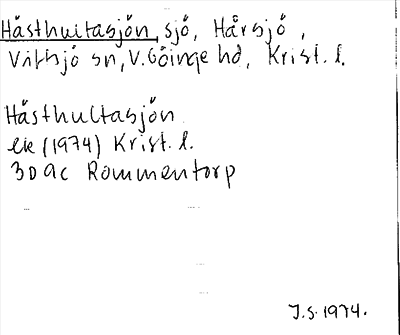 Hästhultasjön, sjö, Hårsjö,
Vittsjö sn, V. Göinge hd, Krist. l.
Hästhultasjön
ek (1974) Krist. l.
3D9c Rommentorp
J.S. 1974.